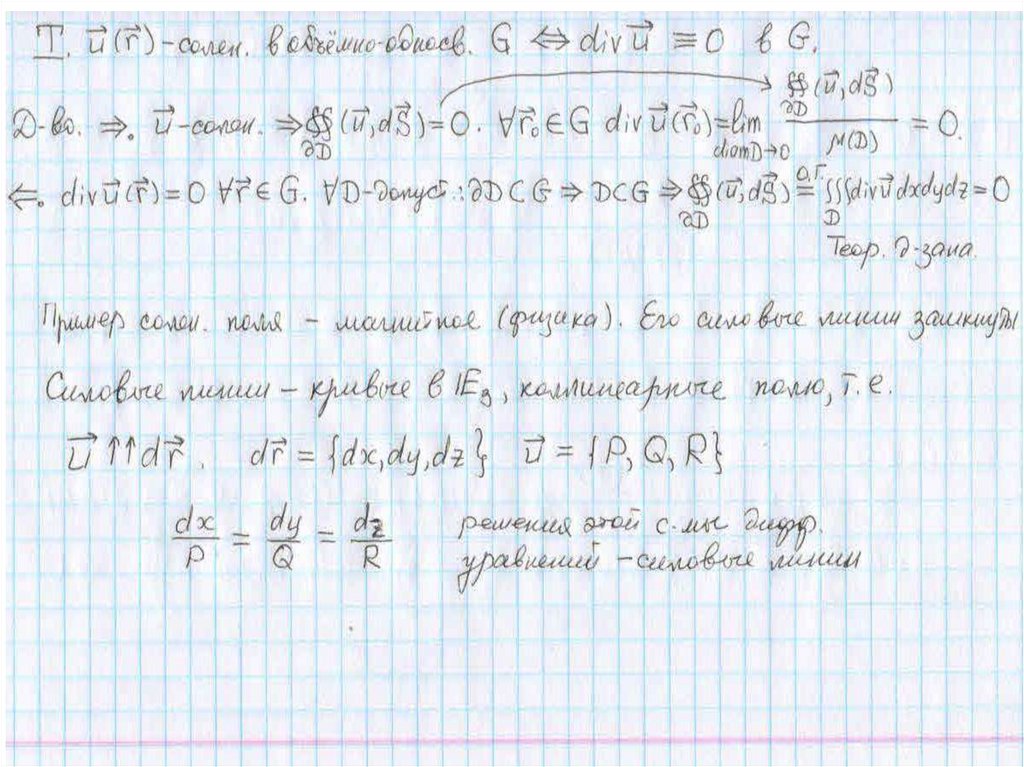 T. u⃗(r⃗)-солен. в объёмно-односв. G ⇔ div u⃗ ≡ 0 в G.
Д-во. ⇒. u⃗-солен. ⇒ ∯_{∂D} (u⃗, dS⃗) = 0. ∀r⃗₀ ∈ G div u⃗(r⃗₀) = lim_{diam D→0} ∯_{∂D} (u⃗, dS⃗) / μ(D) = 0.
⇐. div u⃗(r⃗) = 0 ∀r⃗ ∈ G. ∀D-допуст.: ∂D ⊂ G ⇒ D ⊂ G ⇒ ∯_{∂D} (u⃗, dS⃗) =^{О.Г.} ∭_D div u⃗ dxdydz = 0
Теор. д-зана.
Пример солен. поля – магнитное (физика). Его силовые линии замкнуты
Силовые линии – кривые в E₃, коллинеарные полю, т.е.
u⃗ ↑↑ dr⃗. dr⃗ = {dx, dy, dz} u⃗ = {P, Q, R}
dx/P = dy/Q = dz/R решения этой с-мы дифф.
уравнений – силовые линии